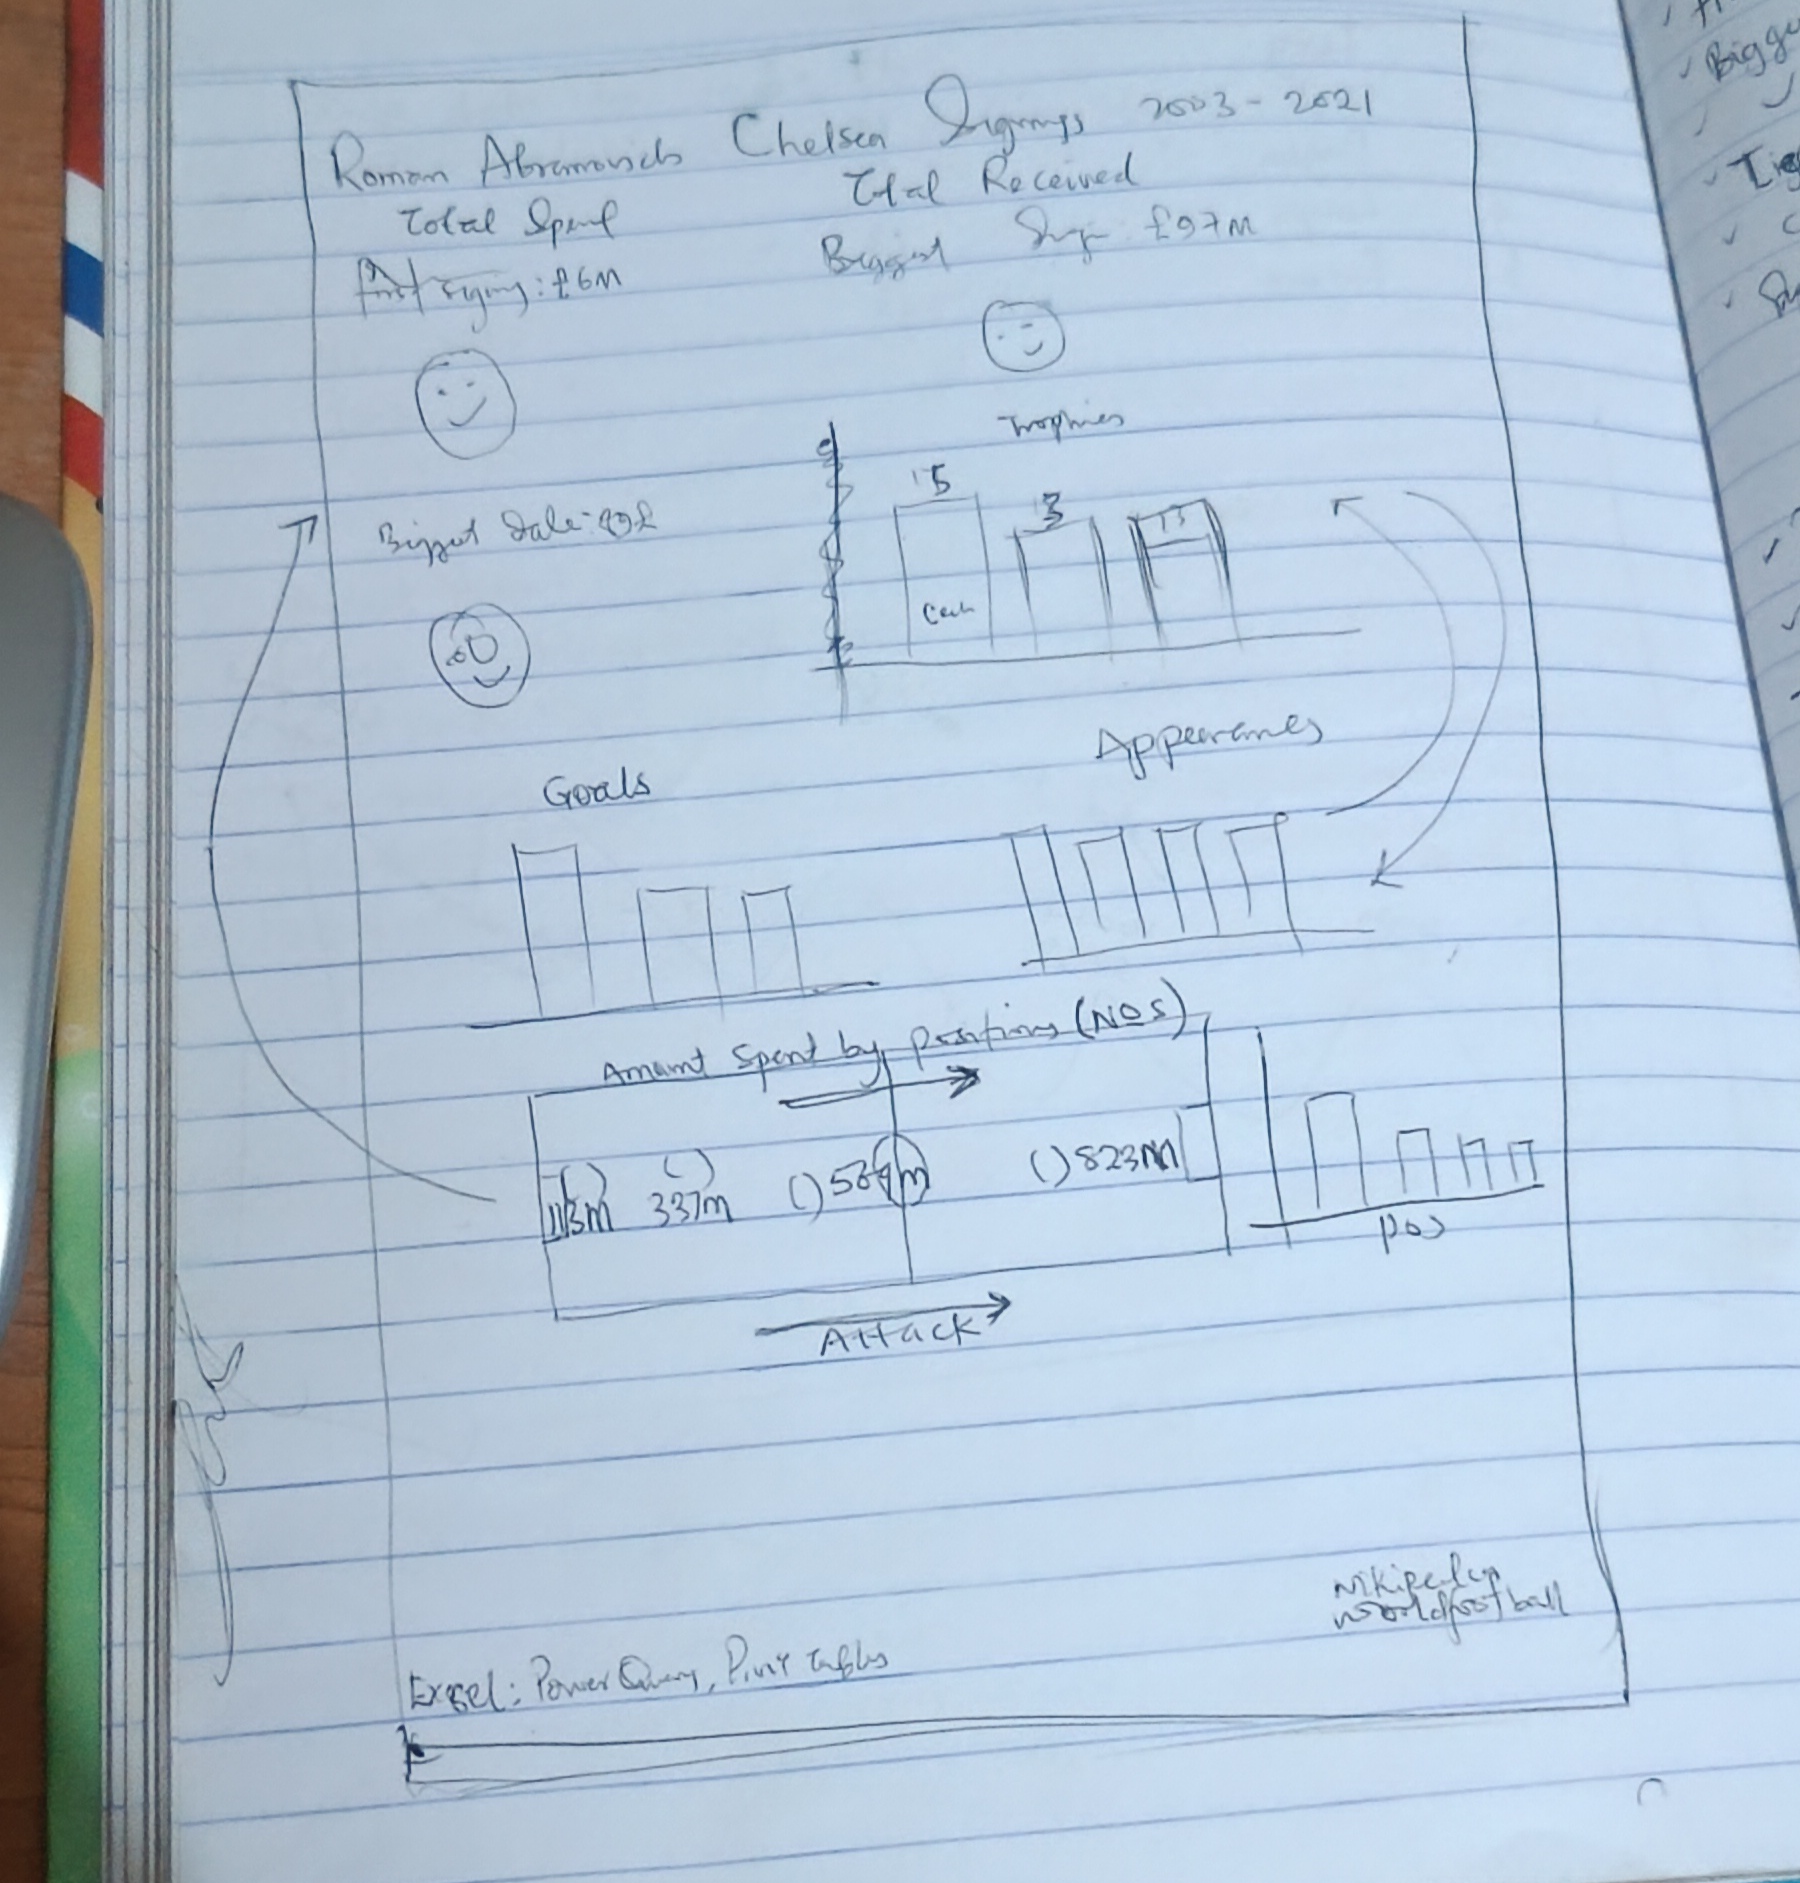 Roman Abramovich Chelsea Signings 2003 - 2021
Total Spent
Total Received
First signing: £6M
Biggest Sign £97M
Trophies
15
3
Biggest Sale: 89£
Cech
Goals
Appearances
Amount Spent by positions (NOS)
113m
( )
337m
( )
( ) 564m
( ) 823m
pos
Attack
wikipedia
worldfootball
Excel: Power Query, Pivot Tables
Bigge